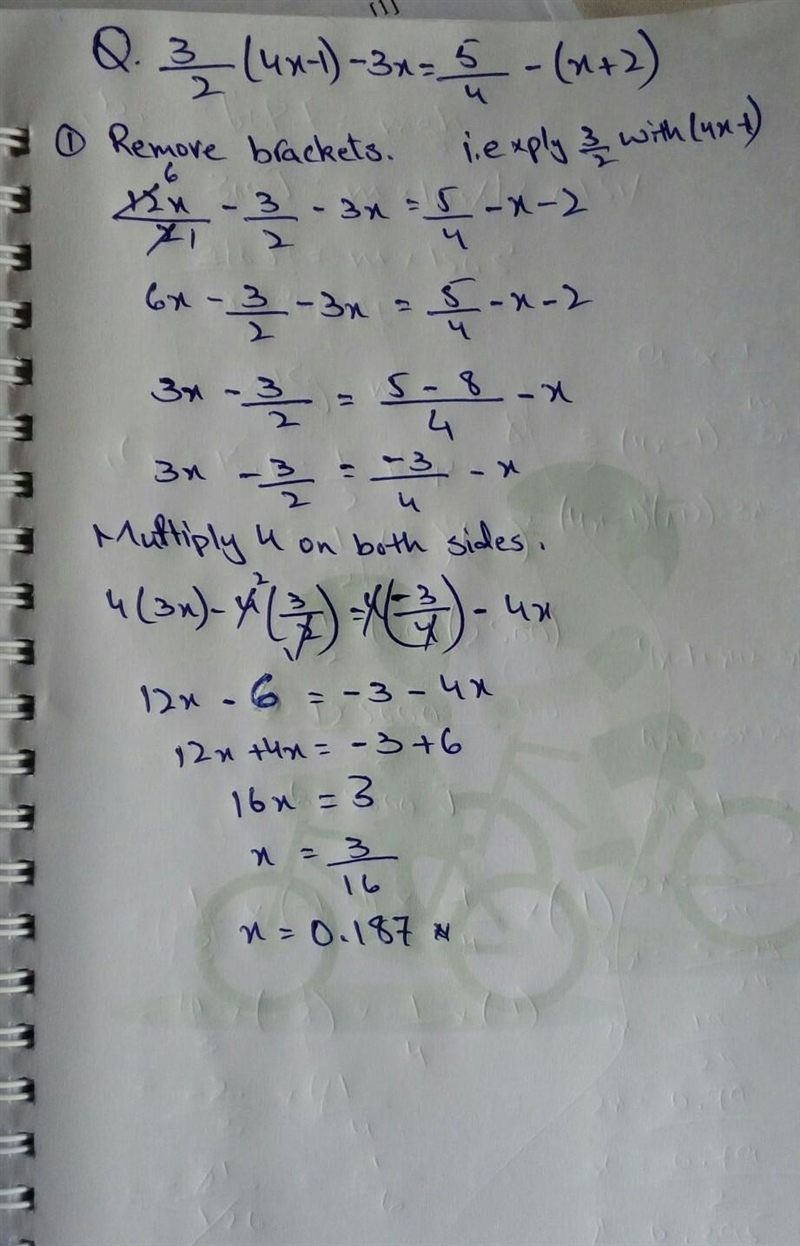 Q. 3/2 (4x-1) - 3x = 5/4 - (x+2)
① Remove brackets. i.e xply 3/2 with (4x-1)
12x/2 6 1 - 3/2 - 3x = 5/4 - x - 2
6x - 3/2 - 3x = 5/4 - x - 2
3x - 3/2 = 5 - 8/4 - x
3x - 3/2 = -3/4 - x
Multiply 4 on both sides.
4(3x) - 4 2 (3/2 1) = 4(-3/4) - 4x
12x - 6 = -3 - 4x
12x + 4x = -3 + 6
16x = 3
x = 3/16
x = 0.187